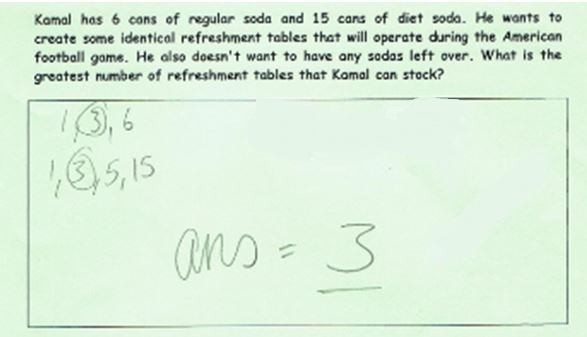 Kamal has 6 cans of regular soda and 15 cans of diet soda. He wants to
create some identical refreshment tables that will operate during the American
football game. He also doesn't want to have any sodas left over. What is the
greatest number of refreshment tables that Kamal can stock?
1, 3, 6
1, 3, 5, 15
ans = 3